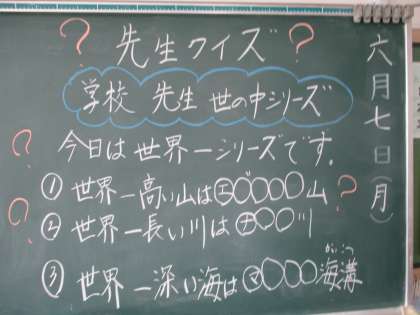 ？先生クイズ？
学校 先生 世の中シリーズ
？今日は世界一シリーズです。
①世界一高い山は㋓○゛○○○山？
？②世界一長い川は㋤○○川
かいこう
③世界一深い海は㋮○○○海溝
六月七日(月)